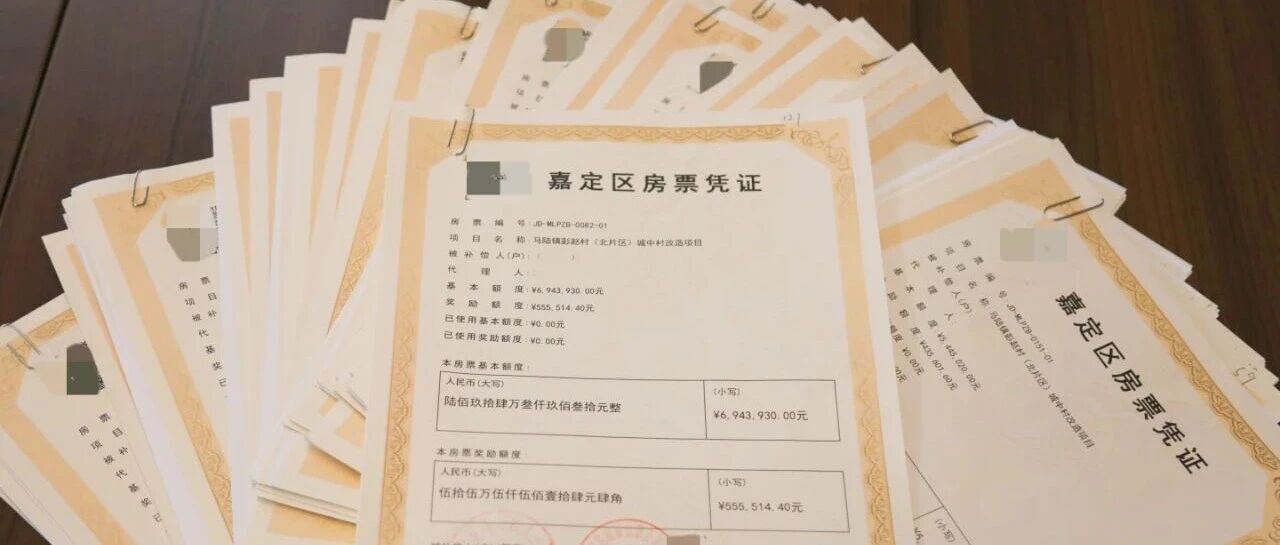 127
嘉定区房票凭证
房票编号:JD-MLPZB-0082-01
项目名称:马陆镇彭赵村(北片区)城中村改造项目
被补偿人(户):( )
代理人:
基本额度:¥6,943,930.00元
奖励额度:¥555,514.40元
已使用基本额度:¥0.00元
已使用奖励额度:¥0.00元
本房票基本额度:
人民币(大写)
陆佰玖拾肆万叁仟玖佰叁拾元整
(小写)
¥6,943,930.00元
本房票奖励额度:
人民币(大写)
伍拾伍万伍仟伍佰壹拾肆元肆角
(小写)
¥555,514.40元
嘉定区房票凭证
房票编号:JD-MLPZB-0151-01
项目名称:马陆镇彭赵村(北片区)城中村改造项目
被补偿人(户)
代理人
基本额度:¥5,445,020.00元
奖励额度:¥435,601.60元
¥0.00元
(小写)
房票
项目
被补
代
基
奖
已
房票
项目
被补
代
基
奖